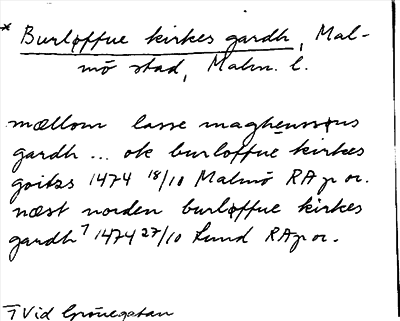 * Burløffue kirkes gardh, Mal-
mö stad, Malm. l.
mællom lasse maghenssøns
gardh ... ok burloffue kirkes
goitzs 1474 18/10 Malmö RAp or.
næst norden burløffue kirkes
gardh 1) 1474 27/10 Lund RAp or.
1) Vid Grönegatan